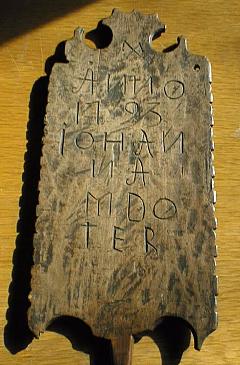 M
ANNO
1793
IOHAN
NA
MDO
TER